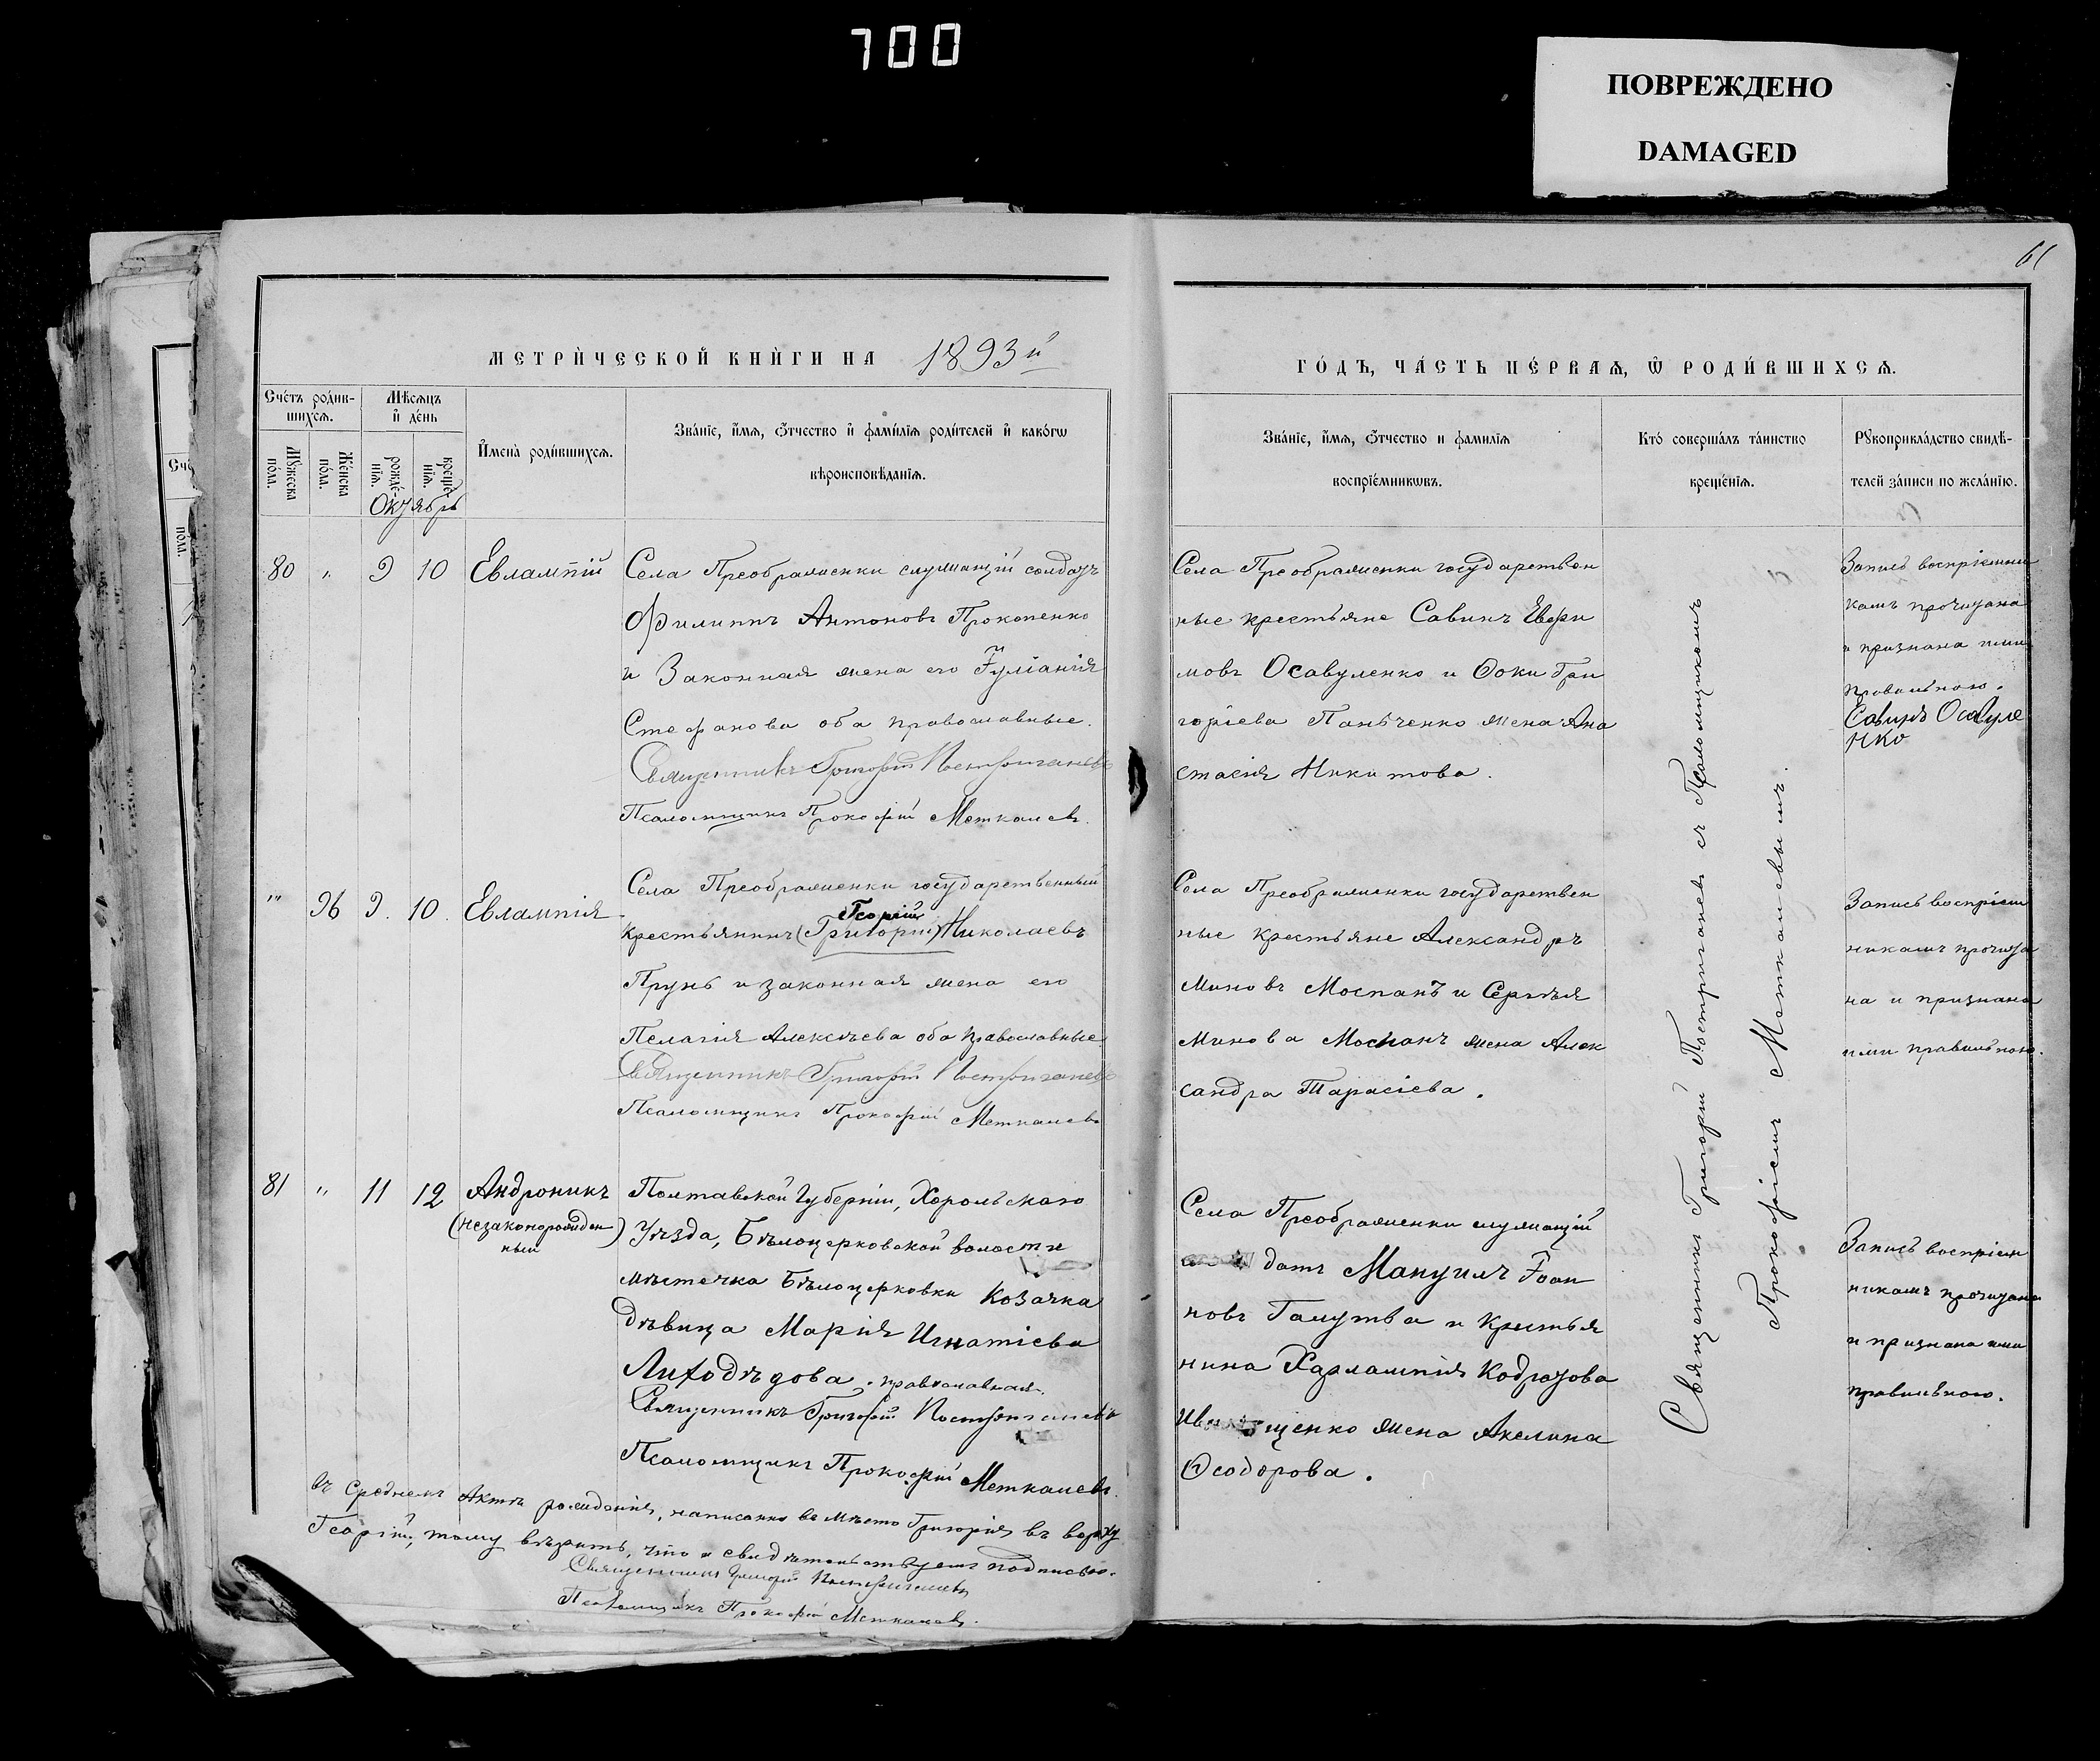 700
ПОВРЕЖДЕНО
DAMAGED
61
МЕТРИЧЕСКОЙ КНИГИ НА 1893й
ГОДЪ, ЧАСТЬ ПЕРВАѦ, Ѿ РОДИВШИХСѦ.
Счетъ родив-
шихсѧ.
Мꙋжеска пола.
Женска пола.
Мѣсѧцъ
и день
рожде-
нїѧ.
креще-
нїѧ.
Октябрь
Имена родившихсѧ.
Званїе, имѧ, ѿчество и фамилїѧ родителей и какогѡ
вѣроисповѣданїѧ.
Званїе, имѧ, ѿчество и фамилїѧ
воспрїемникѡвъ.
Кто совершалъ таинство
крещенїѧ.
Рꙋкоприкладство свидѣ-
телей записи по желанїю.
80 " 9 10 Евлампій
Села Преображенки служащій солдатъ
Филиппъ Антоновъ Прокопенко
и Законная жена его Іуліанія
Стефанова оба православные.
Священникъ Григорій Постриганевъ
Псаломщикъ Прокофій Меткалевъ.
Села Преображенки государствен
ные крестьяне Савинъ Евфи
мовъ Осавуленко и Фоки Гри
горіева Панѣченко жена Ана
стасія Никитова.
Запись воспріемни
камъ прочитана
и признана ими
правильною.
Савинъ Осавуле
нко
" 96 9. 10. Евлампія
Села Преображенки государственный
Георгій
крестьянинъ (Григорій) Николаевъ
Прунь и законная жена его
Пелагія Алексѣева оба православные
Священникъ Григорій Постриганевъ
Псаломщикъ Прокофій Меткалевъ
Села Преображенки государствен
ные крестьяне Александръ
Миновъ Моспанъ и Сергѣя
Минова Моспанъ жена Алек
сандра Тарасіева.
Запись воспріем
никамъ прочита
на и признана
ими правильною.
81 " 11 12 Андроникъ
(незаконорожден
ный)
Полтавской Губерніи, Хорольскаго
Уѣзда, Бѣлоцерковской волости
мѣстечка Бѣлоцерковки Козачка
дѣвица Марія Игнатіева
Лиходѣдова. православная.
Священникъ Григорій Постриганевъ
Псаломщикъ Прокофій Меткалевъ.
Села Преображенки служащій
датъ Мануилъ Іоан
новъ Галутва и Крестья
нина Харлампія Кодратова
щенко жена Акелина
Ѳеодорова.
Запись воспріем
никамъ прочитана
и признана ими
правильною.
Священникъ Григорій Постриганевъ съ Псаломщикомъ
Прокофіемъ Меткалевымъ.
въ Среднемъ Актѣ рожденія, написанно вмѣсто Григорія въ верху
Георгій, тому вѣрить, что и свидѣтельствуемъ подписью.
Священникъ Григорій Постриганевъ
Псаломщикъ Прокофій Меткалевъ.